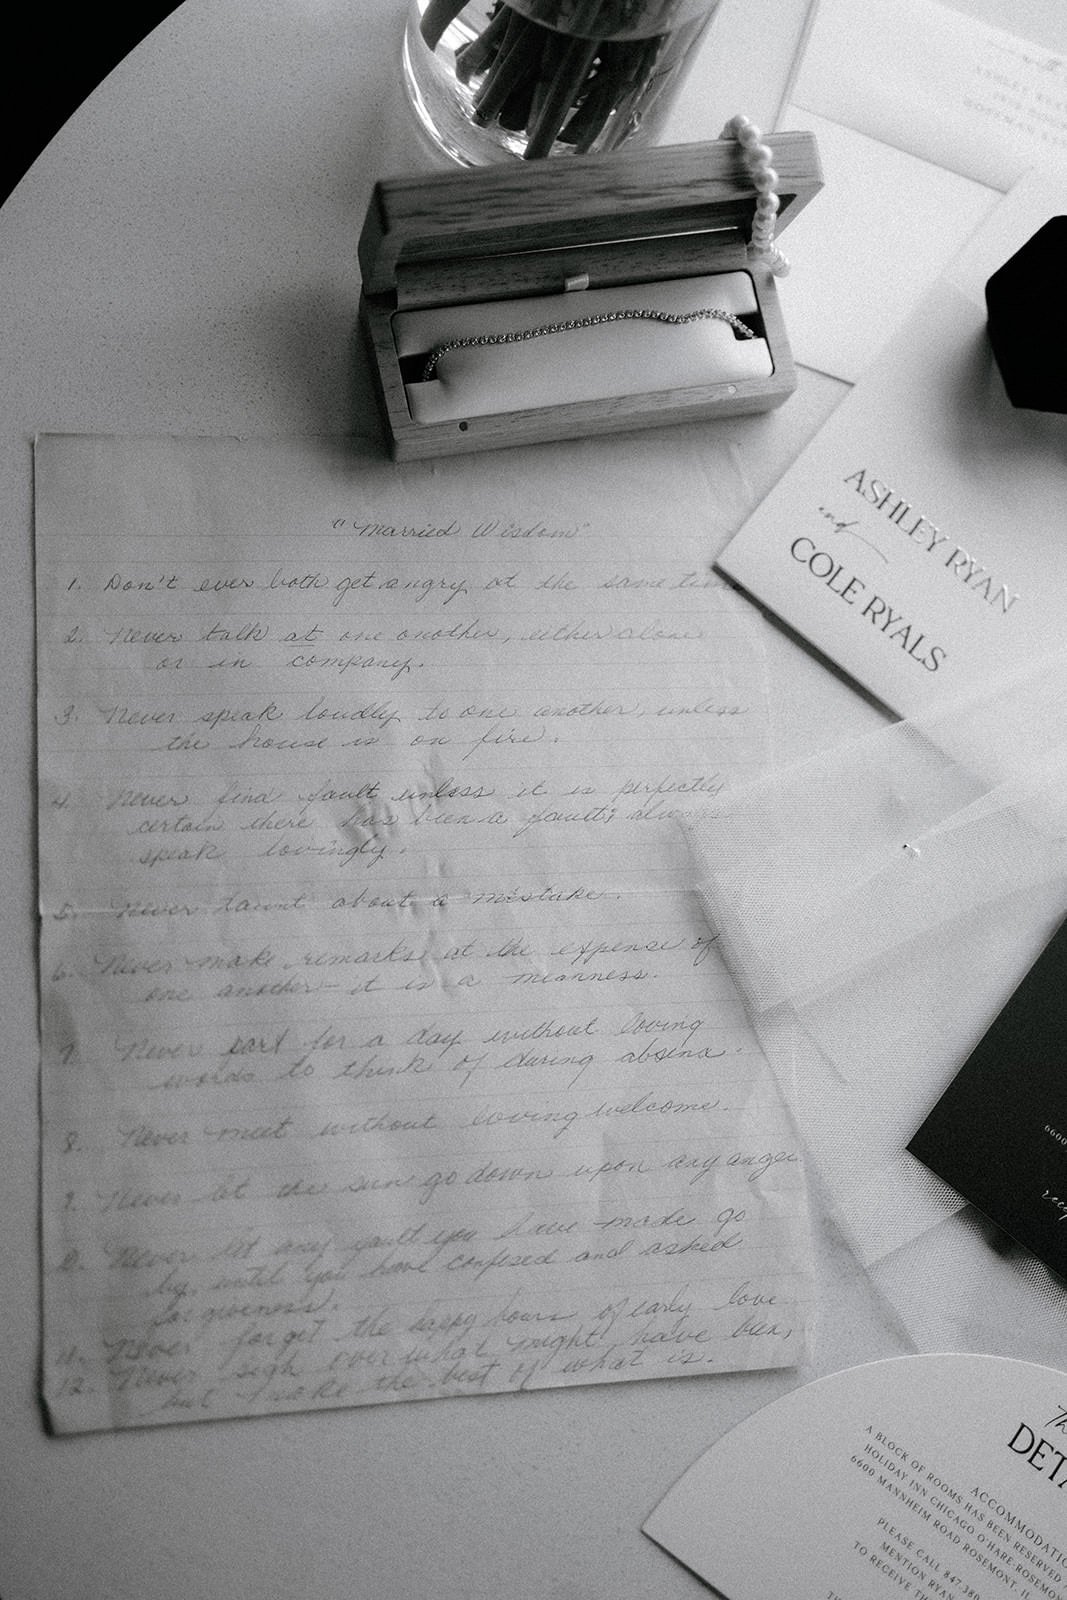 "Married Wisdom"
1. Don't ever both get angry at the same time
2. Never talk at one another, either alone
or in company.
3. Never speak loudly to one another, unless
the house is on fire.
4. Never find fault unless it is perfectly
certain there has been a fault; always
speak lovingly.
5. Never taunt about a mistake.
6. Never make remarks at the expense of
one another - it is a meanness.
7. Never part for a day without loving
words to think of during absence.
8. Never meet without loving welcome.
9. Never let the sun go down upon any anger
10. Never let any fault you have made go
by, until you have confessed and asked
forgiveness.
11. Never forget the happy hours of early love
12. Never sigh over what might have been,
but make the best of what is.
ASHLEY RYAN
and
COLE RYALS
6600
The
DETA
ACCOMMODATIO
A BLOCK OF ROOMS HAS BEEN RESERVED
HOLIDAY INN CHICAGO O'HARE-ROSEMON
6600 MANNHEIM ROAD ROSEMONT, IL
PLEASE CALL 847.380
MENTION RYAN
TO RECEIVE TH